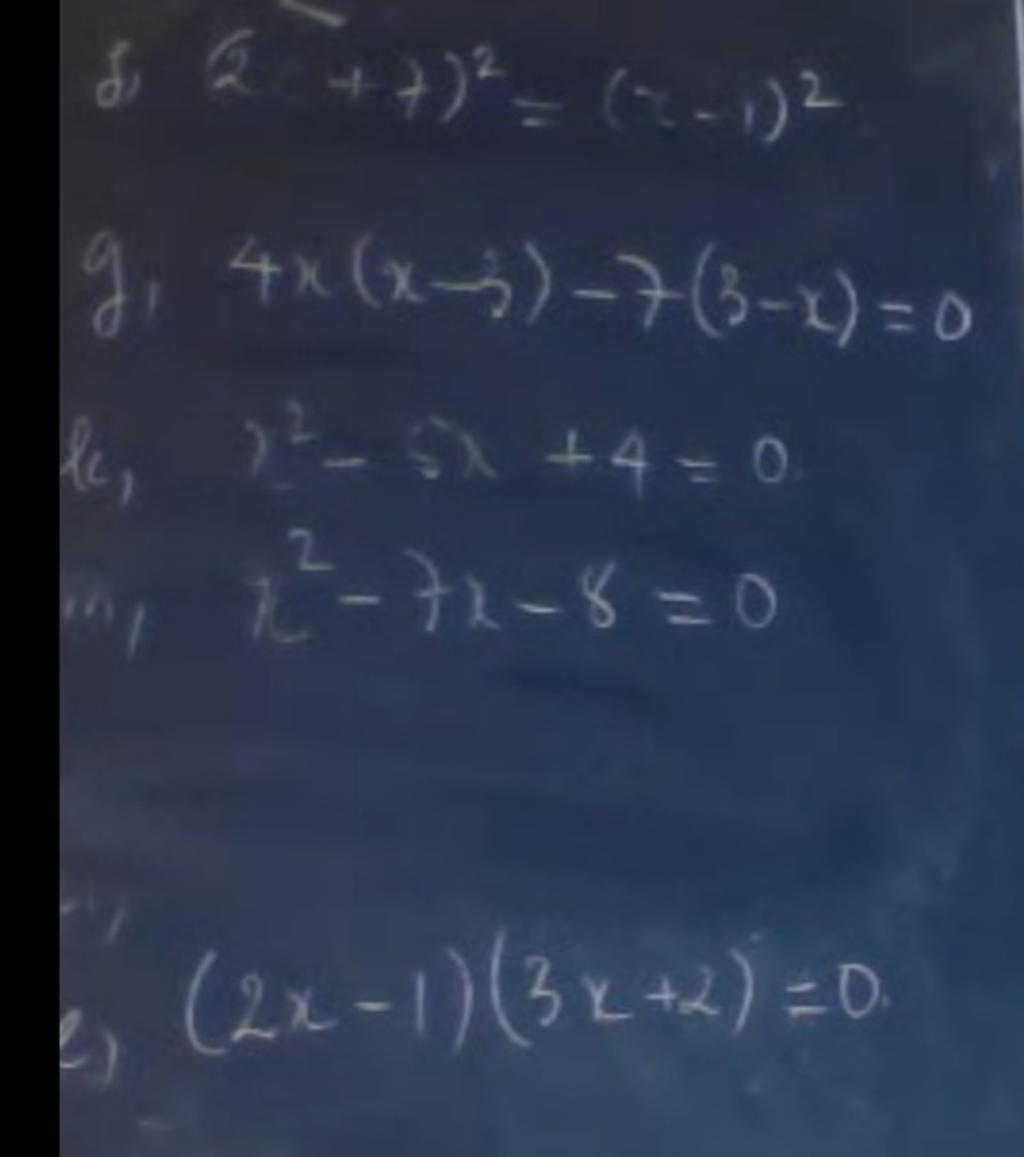 f, (2 + 7)² = (x - 1)²
g, 4x(x - 3) - 7(3 - x) = 0
k, x² - 5x + 4 = 0
m, x² - 7x - 8 = 0
e, (2x - 1)(3x + 2) = 0